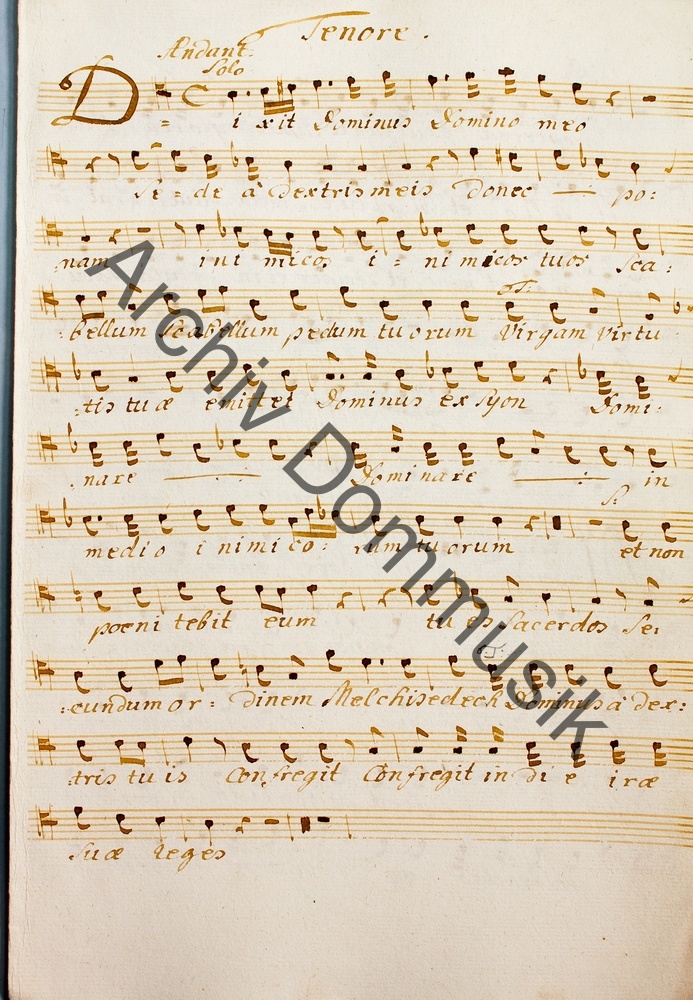 Tenore.
Andant:
Solo
D = i xit Dominus Domino meo
Se = de à dextris meis donec po:
:nam ini micos i = ni micos tuos sca:
:bellum scabellum pedum tuorum Virgam virtu
:tis tuæ emittet Dominus ex Syon Domi:
:nare Dominare in
S:
medio i nimi co: rum tuorum et non
poeni tebit eum tu es sacerdos se:
:cundum or: dinem Melchisedech Dominus à dex:
:tris tu is Confregit Confregit in di e iræ
suæ reges
Archiv Dommusik